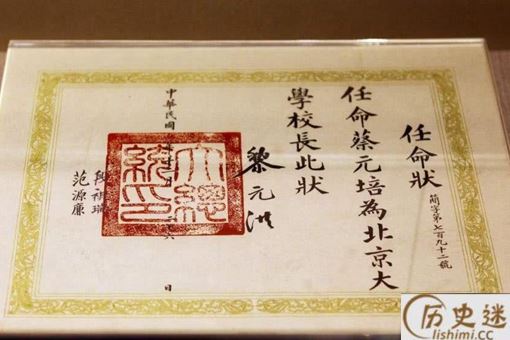 任命狀
簡字第七百九十二號
任命蔡元培為北京大
學校長此狀
黎元洪
大總
統印
中華民國 日
段祺瑞
范源廉
历史迷
lishimi.cc